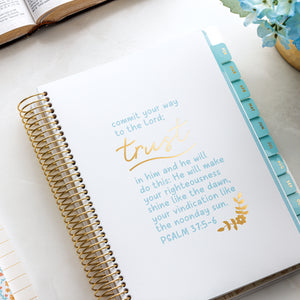 commit your way
to the Lord;
trust
in him and he will
do this: He will make
your righteousness
shine like the dawn,
your vindication like
the noonday sun.
PSALM 37:5-6